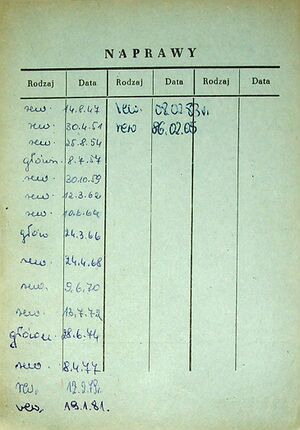 NAPRAWY
Rodzaj Data Rodzaj Data Rodzaj Data
rew. 14.8.47 rew. 02.03.83r.
rew. 30.4.51 rew 86.02.05
rew. 25.8.54
główn. 8.7.57
rew. 30.10.59
rew. 12.3.62
rew. 10.6.64
główn 24.3.66
rew. 24.4.68
rew. 9.6.70
rew. 13.7.72
główn. 28.6.74
rew. 8.4.77
rew. 12.9.79r.
rew. 19.1.81.